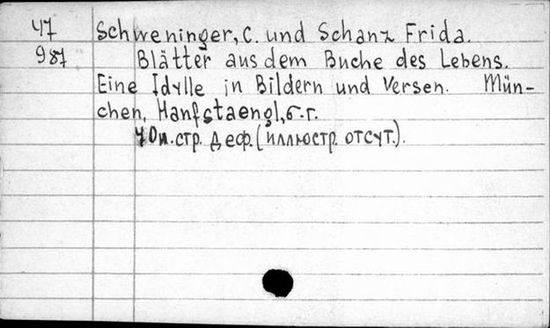 47 Schweninger, C. und Schanz Frida.
987 Blätter aus dem Buche des Lebens.
Eine Idylle in Bildern und Versen. Mün-
chen, Hanfstaengl, б.г.
40н.стр. деф. (иллюстр. отсут.).